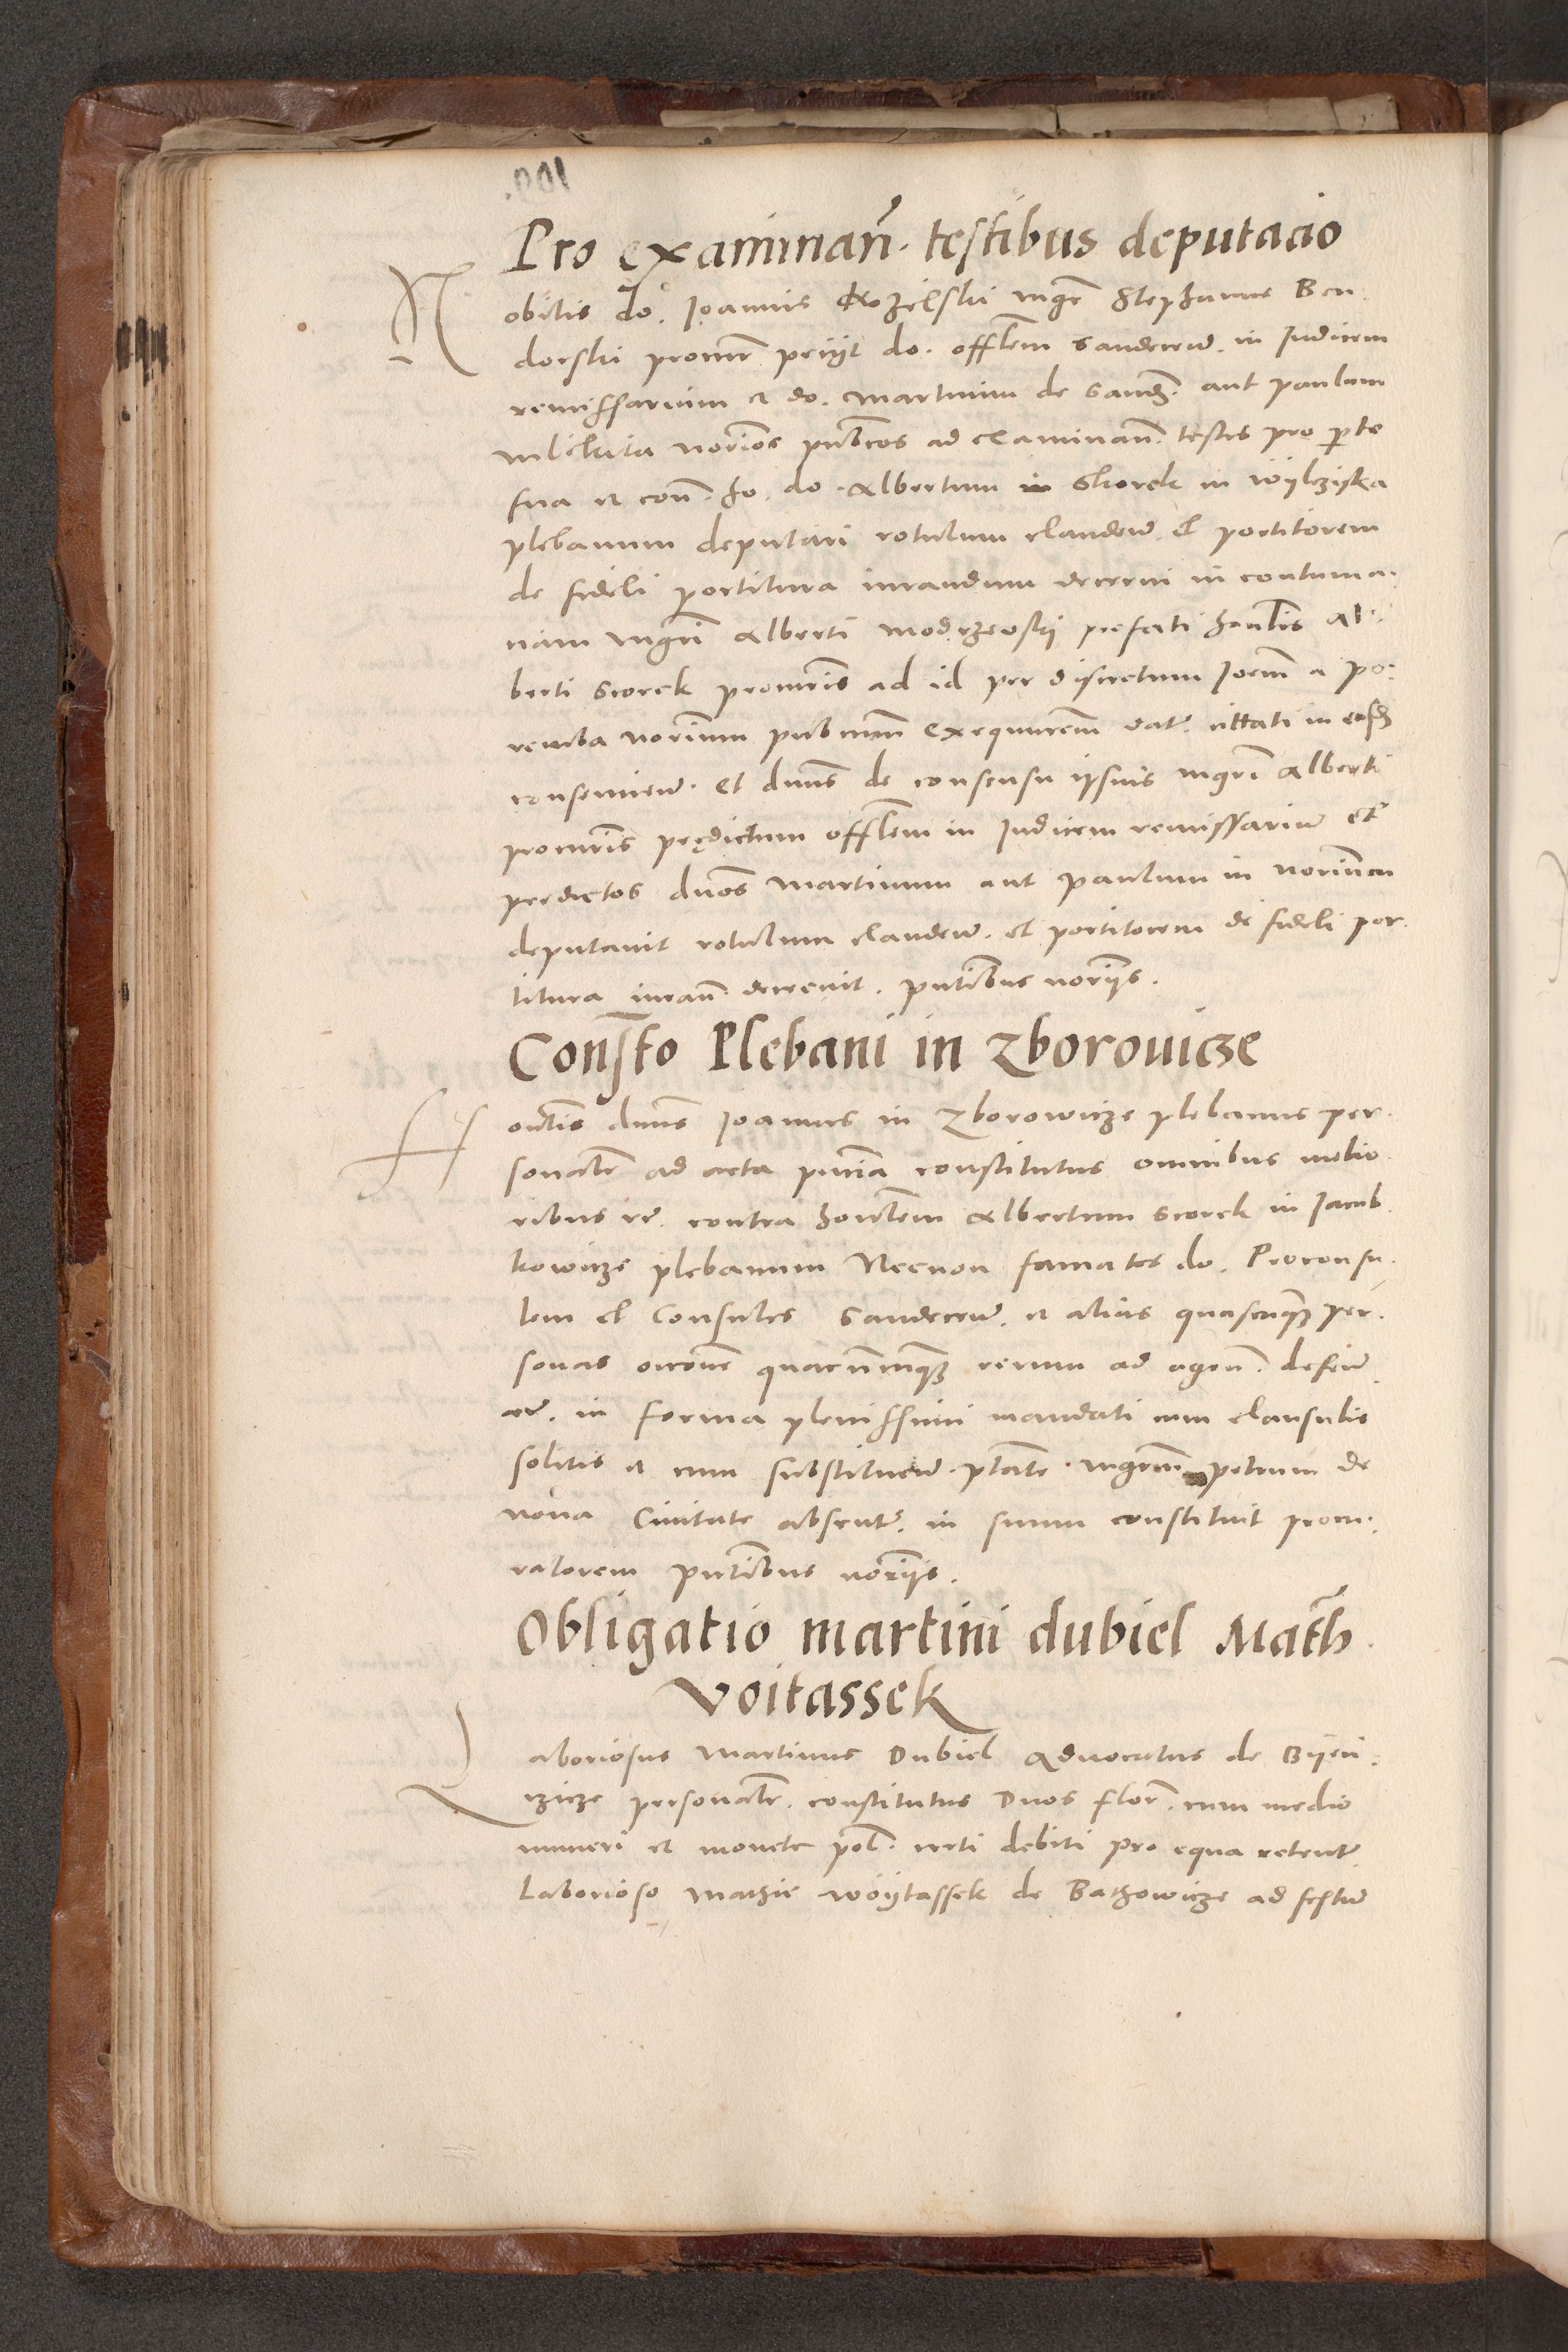 Pro examinan̄. testibus deputacio
Nobilis do. Joannis Kozielski mgr̄ Stephanus Ben
dorski procur̄ petijt do. offlem Sandecen̄. in Judicem
remissarium et do. Martinum de Sandz. aut Paulum
notios pubcos ad examinan̄. testes pro parte
sua et con̄. ho. do. Albertum Skorek in Wylczyska
plebanum deputari rotulum clauden̄. et portitorem
de fideli portitura iurandum decerni in contuma
ciam mgri Alberti Modrzewskij prefati honlis Al
berti Skorek procuris ad id per discretum Joem a Po
remba notium pubcum exequutem dat. citati in easdz
consencien̄. Et dnus de consensu ipsius mgri Alberti
procuris prędictum offlem in Judicem remissariū et
predictos dnos Martinum aut Paulum in notium
deputauit rotulum clauden̄. et portitorem de fideli por
titura iuran̄. decreuit. pntibus notijs.
Consto Plebani in Zborouicze
Honlis dnus Joannes in Zborowicze plebanus per
sonalr ad acta pntia constitutus omnibus melio
ribus etc. contra honlem Albertum Skorek in Jacub
kowicze plebanum Necnon famatos do. Proconsu
lem et Consules Sandecen̄. et alias quascunqz per
sonas occone quarumcunqz rerum ad agen̄. defen̄
etc. in forma plenissimi mandati cum clausulis
solitis et cum substituen̄. ptate. mgrum petrum de
noua Ciuitate absentē. in suum constituit procu
ratorem pntibus notijs.
Obligatio martini dubiel Math.
Voitassek
Laboriosus Martinus Dubiel Aduocatus de Byen
czicze personalr. constitutus Duos flor. cum medio
numeri et monete pol. veri debiti pro equa
Laborioso Mathie Woytassek de Bathowicze ad festū